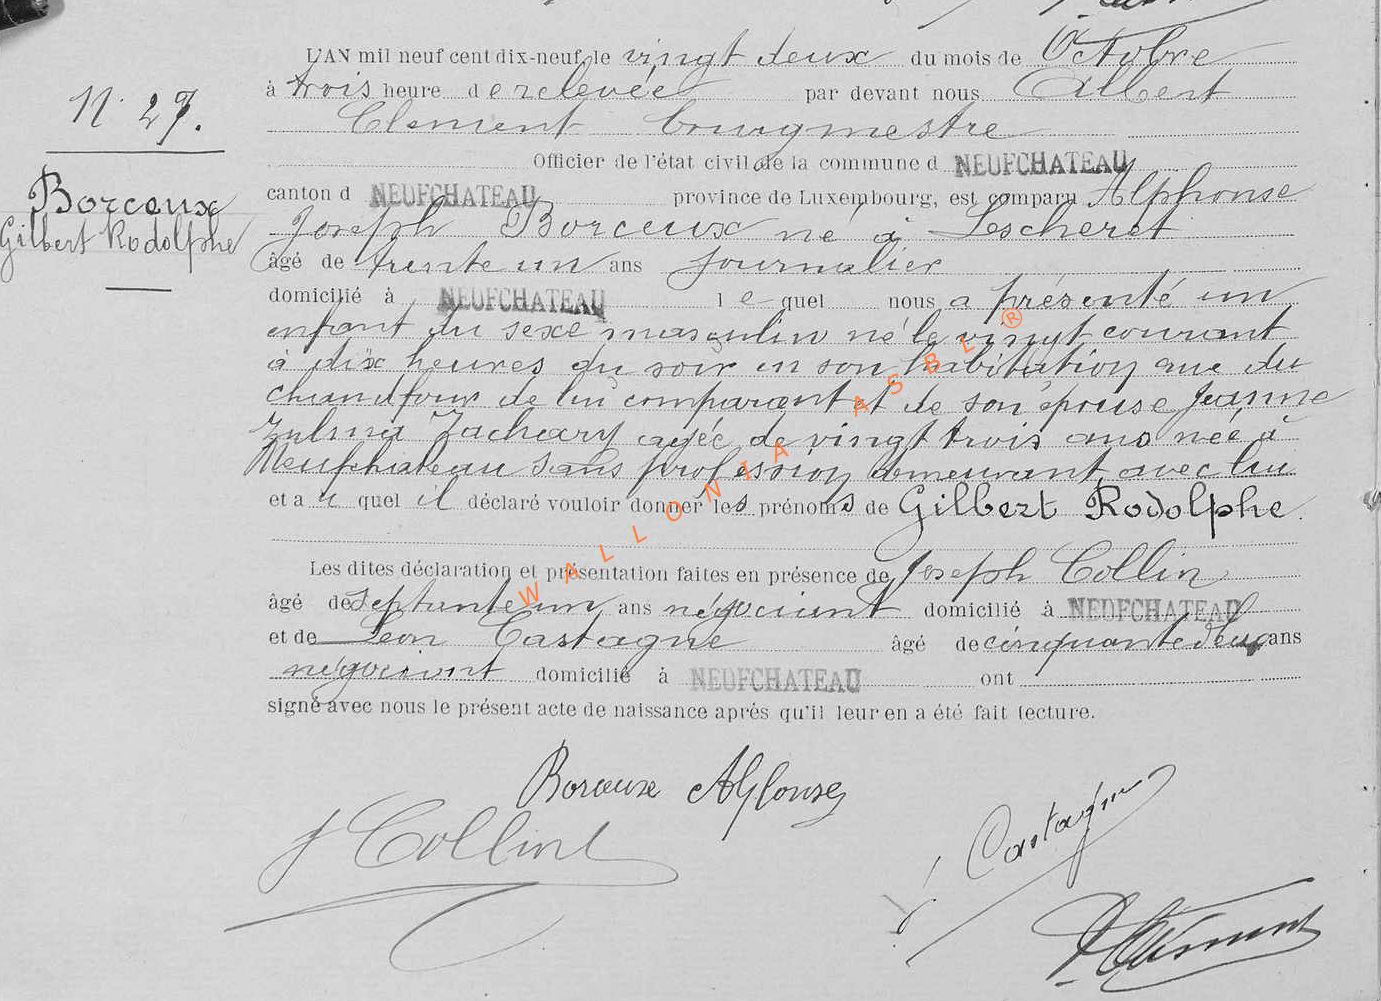 L'AN mil neuf cent dix-neuf, le vingt deux du mois de Octobre
à trois heure de relevée par devant nous Albert
Clément bourgmestre
N. 27.
Officier de l'état civil de la commune d NEUFCHATEAU
Borceux
canton d NEUFCHATEAU province de Luxembourg, est comparu Alphonse
Gilbert Rodolphe
Joseph Borceux né à Lescheret
âgé de trente un ans journalier
domicilié à NEUFCHATEAU lequel nous a présenté un
enfant du sexe masculin né le vingt courant
à dix heures du soir en son habitation rue du
chaudfour de lui comparant et de son épouse Jeanne
Zulma Zacheary agée de vingt trois ans née à
Neufchateau sans profession demeurant avec lui
et a u quel il déclaré vouloir donner les prénoms de Gilbert Rodolphe.
Les dites déclaration et présentation faites en présence de Joseph Collin
âgé de septante un ans négociant domicilié à NEUFCHATEAU
et de Léon Castagne âgé de cinquante deux ans
négociant domicilié à NEUFCHATEAU ont
signé avec nous le présent acte de naissance après qu'il leur en a été fait lecture.
Borceux Alfonse
J Collin
Castagne
A Clément
WALLONIA ASBL ®